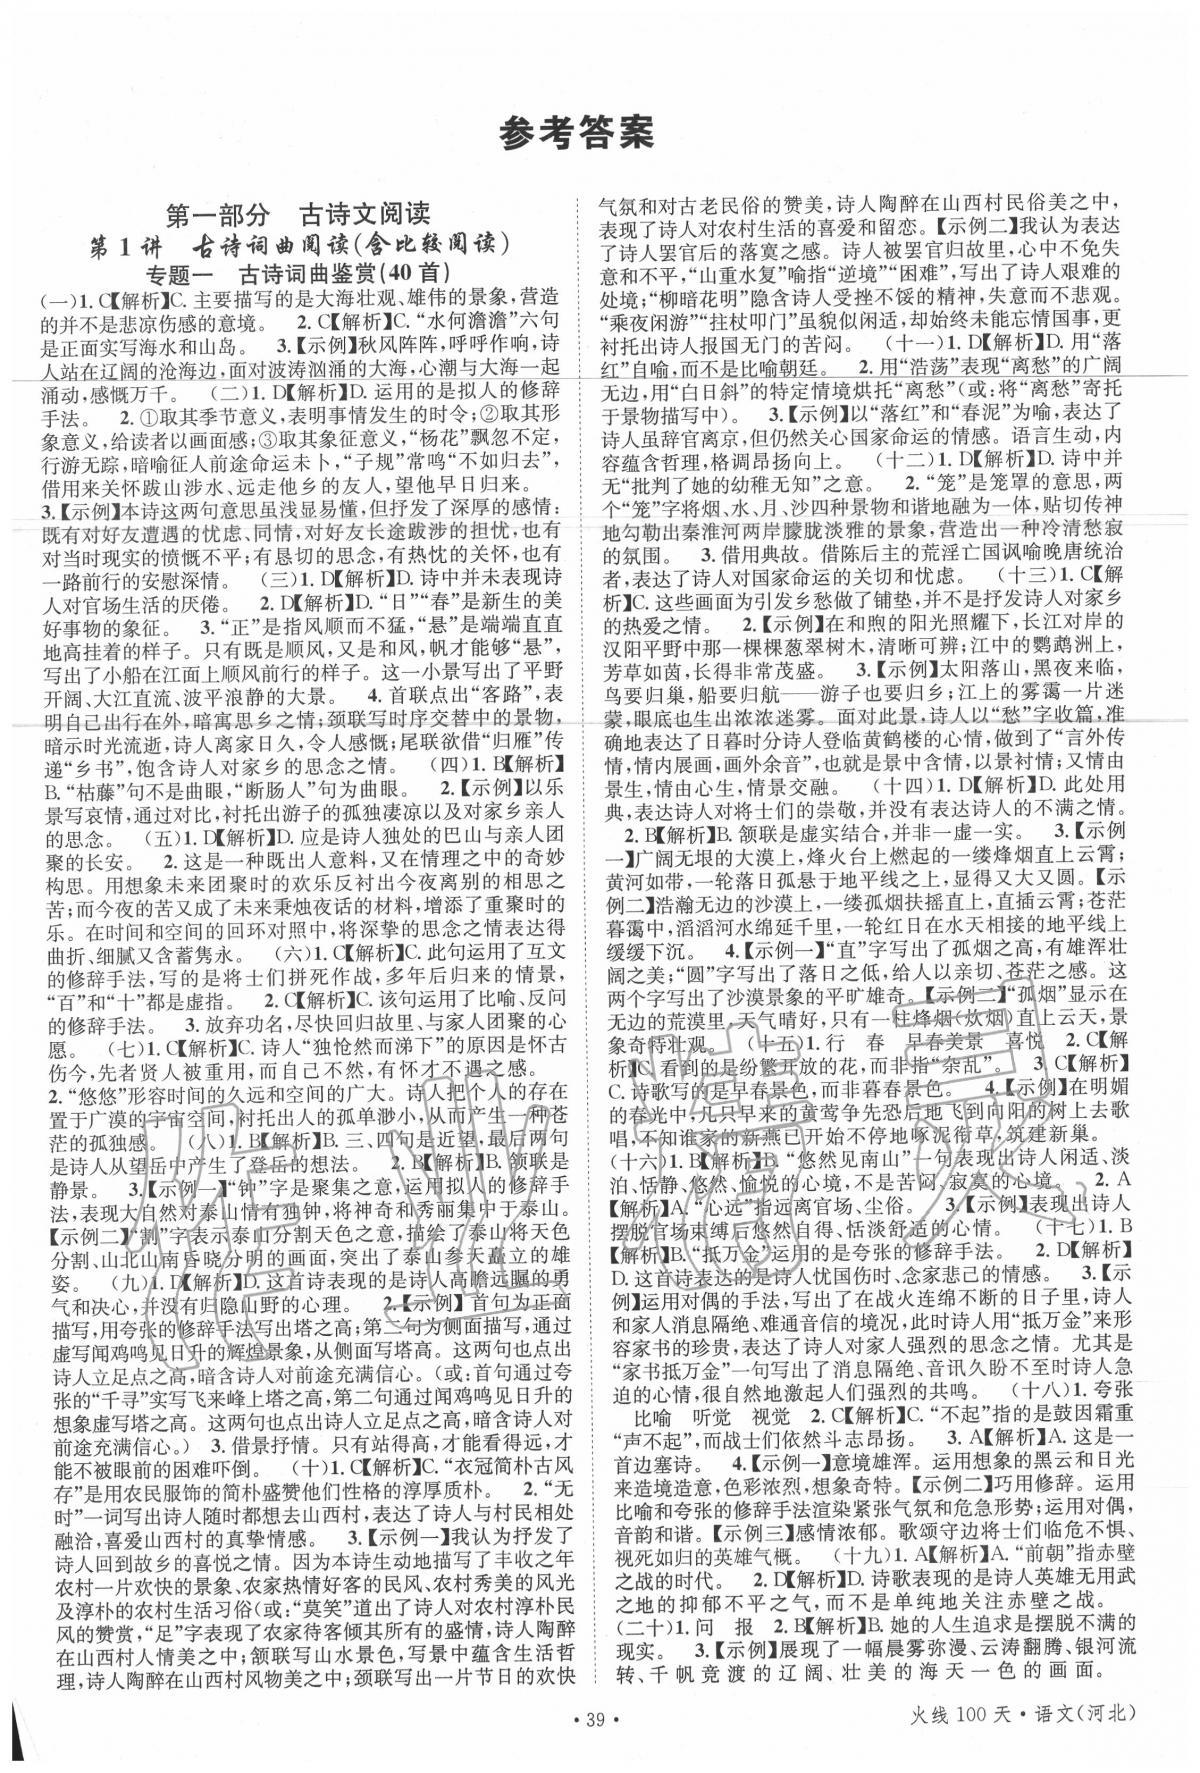 参考答案
第一部分 古诗文阅读
第1讲 古诗词曲阅读(含比较阅读)
专题一 古诗词曲鉴赏(40首)
(一)1. C【解析】C. 主要描写的是大海壮观、雄伟的景象,营造
的并不是悲凉伤感的意境。 2. C【解析】C. “水何澹澹”六句
是正面实写海水和山岛。 3.【示例】秋风阵阵,呼呼作响,诗
人站在辽阔的沧海边,面对波涛汹涌的大海,心潮与大海一起
涌动,感慨万千。 (二)1. D【解析】D. 运用的是拟人的修辞
手法。 2. ①取其季节意义,表明事情发生的时令;②取其形
象意义,给读者以画面感;③取其象征意义,“杨花”飘忽不定,
行游无踪,暗喻征人前途命运未卜,“子规”常鸣“不如归去”,
借用来关怀跋山涉水、远走他乡的友人,望他早日归来。
3.【示例】本诗这两句意思虽浅显易懂,但抒发了深厚的感情:
既有对好友遭遇的忧虑、同情,对好友长途跋涉的担忧,也有
对当时现实的愤慨不平;有恳切的思念,有热忱的关怀,也有
一路前行的安慰深情。 (三)1. D【解析】D. 诗中并未表现诗
人对官场生活的厌倦。 2. D【解析】D. “日”“春”是新生的美
好事物的象征。 3. “正”是指风顺而不猛,“悬”是端端直直
地高挂着的样子。只有既是顺风,又是和风,帆才能够“悬”,
写出了小船在江面上顺风前行的样子。这一小景写出了平野
开阔、大江直流、波平浪静的大景。 4. 首联点出“客路”,表
明自己出行在外,暗寓思乡之情;颈联写时序交替中的景物,
暗示时光流逝,诗人离家日久,令人感慨;尾联欲借“归雁”传
递“乡书”,饱含诗人对家乡的思念之情。 (四)1. B【解析】
B. “枯藤”句不是曲眼,“断肠人”句为曲眼。 2.【示例】以乐
景写哀情,通过对比,衬托出游子的孤独凄凉以及对家乡亲人
的思念。 (五)1. D【解析】D. 应是诗人独处的巴山与亲人团
聚的长安。 2. 这是一种既出人意料,又在情理之中的奇妙
构思。用想象未来团聚时的欢乐反衬出今夜离别的相思之
苦;而今夜的苦又成了未来秉烛夜话的材料,增添了重聚时的
乐。在时间和空间的回环对照中,将深挚的思念之情表达得
曲折、细腻又含蓄隽永。 (六)1. C【解析】C. 此句运用了互文
的修辞手法,写的是将士们拼死作战,多年后归来的情景,
“百”和“十”都是虚指。 2. C【解析】C. 该句运用了比喻、反问
的修辞手法。 3. 放弃功名,尽快回归故里、与家人团聚的心
愿。 (七)1. C【解析】C. 诗人“独怆然而涕下”的原因是怀古
伤今,先者贤人被重用,而自己不然,有怀才不遇之感。
2. “悠悠”形容时间的久远和空间的广大。诗人把个人的存在
置于广漠的宇宙空间,衬托出人的孤单渺小,从而产生一种苍
茫的孤独感。 (八)1. B【解析】B. 三、四句是近望,最后两句
是诗人从望岳中产生了登岳的想法。 2. B【解析】B. 颔联是
静景。 3.【示例一】“钟”字是聚集之意,运用拟人的修辞手
法,表现大自然对泰山情有独钟,将神奇和秀丽集中于泰山。
【示例二】“割”字表示泰山分割天色之意,描绘了泰山将天色
分割、山北山南昏晓分明的画面,突出了泰山参天矗立的雄
姿。 (九)1. D【解析】D. 这首诗表现的是诗人高瞻远瞩的勇
气和决心,并没有归隐山野的心理。 2.【示例】首句为正面
描写,用夸张的修辞手法写出塔之高;第二句为侧面描写,通过
虚写闻鸡鸣见日升的辉煌景象,从侧面突出塔之高。这两句也点出
诗人立足点之高,暗含诗人对前途充满信心。(或:首句通过夸
张的“千寻”实写飞来峰上塔之高,第二句通过闻鸡鸣见日升的
想象虚写塔之高。这两句也点出诗人立足点之高,暗含诗人对
前途充满信心。) 3. 借景抒情。只有站得高,才能看得远,才
能不被眼前的困难吓倒。 (十)1. C【解析】C. “衣冠简朴古风
存”是用农民服饰的简朴盛赞他们性格的淳厚质朴。 2. “无
时”一词写出诗人随时都想去山西村,表达了诗人与村民相处
融洽,喜爱山西村的真挚情感。 3.【示例一】我认为抒发了
诗人回到故乡的喜悦之情。因为本诗生动地描写了丰收之年
农村一片欢快的景象、农家热情好客的民风、农村秀美的风光
及淳朴的农村生活习俗(或:“莫笑”道出了诗人对农村淳朴民
风的赞赏,“足”字表现了农家待客倾其所有的盛情,诗人陶醉
在山西村人情美之中;颔联写山水景色,写景中蕴含生活哲
理,诗人陶醉在山西村风物美之中;颈联描写出一片节日的欢快
气氛和对古老民俗的赞美,诗人陶醉在山西村民俗美之中,
表现了诗人对农村生活的喜爱和留恋。【示例二】我认为表达
了诗人罢官后的落寞之感。诗人被罢官归故里,心中不免失
意和不平,“山重水复”喻指“逆境”“困难”,写出了诗人艰难的
处境;“柳暗花明”隐含诗人受挫不馁的精神,失意而不悲观。
“乘夜闲游”“拄杖叩门”虽貌似闲适,却始终未能忘情国事,更
衬托出诗人报国无门的苦闷。 (十一)1. D【解析】D. 用“落
红”自喻,而不是比喻朝廷。 2. 用“浩荡”表现“离愁”的广阔
无边,用“白日斜”的特定情境烘托“离愁”(或:将“离愁”寄托
于景物描写中)。 3.【示例】以“落红”和“春泥”为喻,表达了
诗人虽辞官离京,但仍然关心国家命运的情感。语言生动,内
容蕴含哲理,格调昂扬向上。 (十二)1. D【解析】D. 诗中并
无“批判了她的幼稚无知”之意。 2. “笼”是笼罩的意思,两
个“笼”字将烟、水、月、沙四种景物和谐地融为一体,贴切传神
地勾勒出秦淮河两岸朦胧淡雅的景象,营造出一种冷清愁寂
的氛围。 3. 借用典故。借陈后主的荒淫亡国讽喻晚唐统治
者,表达了诗人对国家命运的关切和忧虑。 (十三)1. C【解
析】C. 这些画面为引发乡愁做了铺垫,并不是抒发诗人对家乡
的热爱之情。 2.【示例】在和煦的阳光照耀下,长江对岸的
汉阳平野中那一棵棵葱翠树木,清晰可辨;江中的鹦鹉洲上,
芳草如茵,长得非常茂盛。 3.【示例】太阳落山,黑夜来临,
鸟要归巢,船要归航——游子也要归乡;江上的雾霭一片迷
蒙,眼底也生出浓浓迷雾。面对此景,诗人以“愁”字收篇,准
确地表达了日暮时分诗人登临黄鹤楼的心情,做到了“言外传
情,情内展画,画外余音”,也就是景中含情,以景衬情;又情由
景生,情由心生,情景交融。 (十四)1. D【解析】D. 此处用
典,表达诗人对将士们的崇敬,并没有表达诗人的不满之情。
2. B【解析】B. 颔联是虚实结合,并非一虚一实。 3.【示例
一】广阔无垠的大漠上,烽火台上燃起的一缕烽烟直上云霄;
黄河如带,一轮落日孤悬于地平线之上,显得又大又圆。【示
例二】浩瀚无边的沙漠上,一缕孤烟扶摇直上,直插云霄;苍茫
暮霭中,滔滔河水绵延千里,一轮红日在水天相接的地平线上
缓缓下沉。 4.【示例一】“直”字写出了孤烟之高,有雄浑壮
阔之美;“圆”字写出了落日之低,给人以亲切、苍茫之感。这
两个字写出了沙漠景象的平旷雄奇。【示例二】“孤烟”显示在
无边的荒漠里,天气晴好,只有一柱烽烟(炊烟)直上云天,景
象奇特壮观。 (十五)1. 行 春 早春美景 喜悦 2. C【解
析】C. 看到的是纷繁开放的花,而非指“杂乱”。 3. C【解析】
C. 诗歌写的是早春景色,而非暮春景色。 4.【示例】在明媚
的春光中,几只早来的黄莺争先恐后地飞到向阳的树上去歌
唱,不知谁家的新燕已开始不停地啄泥衔草,筑建新巢。
(十六)1. B【解析】B. “悠然见南山”一句表现出诗人闲适、淡
泊、恬静、悠然、愉悦的心境,不是苦闷、寂寞的心境。 2. A
【解析】A. “心远”指远离官场、尘俗。 3.【示例】表现出诗人
摆脱官场束缚后悠然自得、恬淡舒适的心情。 (十七)1. B
【解析】B. “抵万金”运用的是夸张的修辞手法。 2. D【解析】
D. 这首诗表达的是诗人忧国伤时、念家悲己的情感。 3.【示
例】运用对偶的手法,写出了在战火连绵不断的日子里,诗人
和家人消息隔绝、难通音信的境况,此时诗人用“抵万金”来形
容家书的珍贵,表达了诗人对家人强烈的思念之情。尤其是
“家书抵万金”一句写出了消息隔绝、音讯久盼不至时诗人急
迫的心情,很自然地激起人们强烈的共鸣。 (十八)1. 夸张
比喻 听觉 视觉 2. C【解析】C. “不起”指的是鼓因霜重
“声不起”,而战士们依然斗志昂扬。 3. A【解析】A. 这是一
首边塞诗。 4.【示例一】意境雄浑。运用想象的黑云和日光
来造境造意,色彩浓烈,想象奇特。【示例二】巧用修辞。运用
比喻和夸张的修辞手法渲染紧张气氛和危急形势;运用对偶,
音韵和谐。【示例三】感情浓郁。歌颂守边将士们临危不惧、
视死如归的英雄气概。 (十九)1. A【解析】A. “前朝”指赤壁
之战的时代。 2. D【解析】D. 诗歌表现的是诗人英雄无用武
之地的抑郁不平之气,而不是单纯地关注赤壁之战。
(二十)1. 问 报 2. B【解析】B. 她的人生追求是摆脱不满的
现实。 3.【示例】展现了一幅晨雾弥漫、云涛翻腾、银河流
转、千帆竞渡的辽阔、壮美的海天一色的画面。
作业精灵
·39·
火线100天·语文(河北)